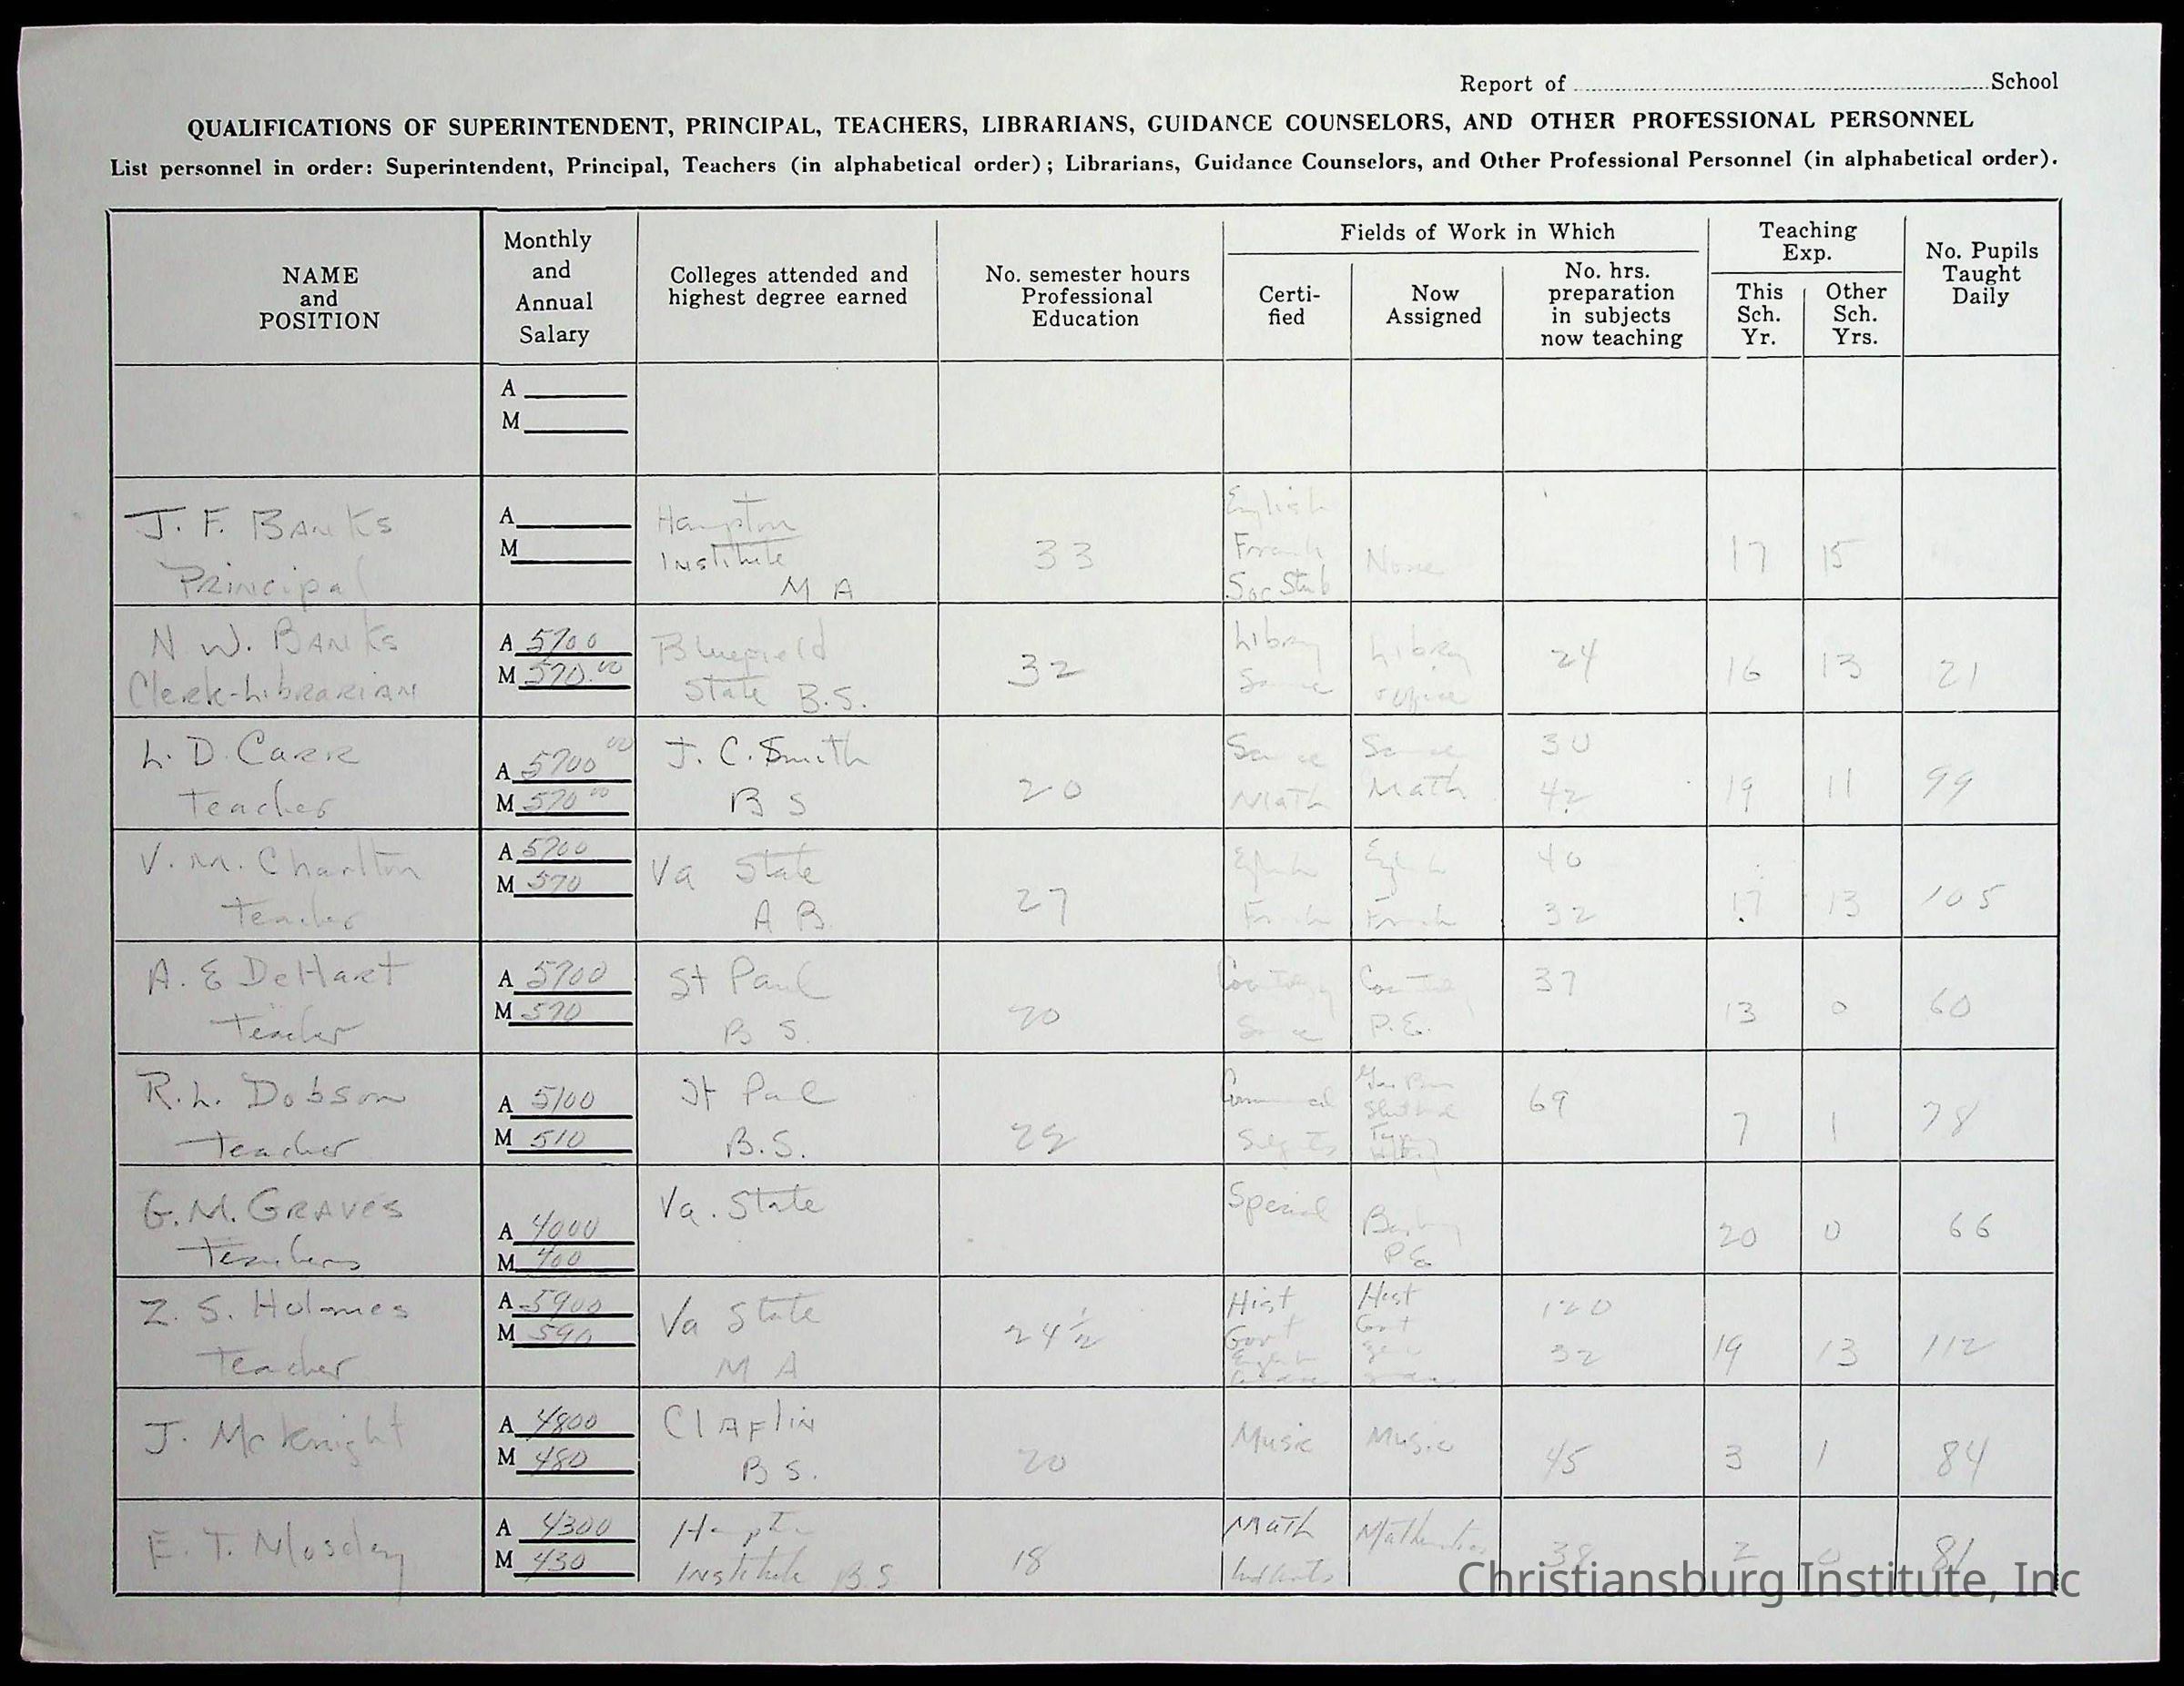 Report of ........ School
QUALIFICATIONS OF SUPERINTENDENT, PRINCIPAL, TEACHERS, LIBRARIANS, GUIDANCE COUNSELORS, AND OTHER PROFESSIONAL PERSONNEL
List personnel in order: Superintendent, Principal, Teachers (in alphabetical order); Librarians, Guidance Counselors, and Other Professional Personnel (in alphabetical order).
NAME
and
POSITION
Monthly
and
Annual
Salary
Colleges attended and
highest degree earned
No. semester hours
Professional
Education
Fields of Work in Which
Certi-
fied
Now
Assigned
No. hrs.
preparation
in subjects
now teaching
Teaching
Exp.
This
Sch.
Yr.
Other
Sch.
Yrs.
No. Pupils
Taught
Daily
A
M
J. F. Banks
Principal
A
M
Hampton
Institute
M A
33
English
French
Soc Stud
None
17
15
N. W. Banks
Clerk-Librarian
A 5700
M 570.00
Bluefield
State B.S.
32
Library
Science
Library
Office
24
16
13
21
L. D. Carr
Teacher
A 5700 00
M 570 00
J. C. Smith
B S
20
Science
Math
Science
Math
30
42
19
11
99
V. M. Charlton
Teacher
A 5700
M 570
Va State
A B
27
English
French
English
French
40
32
17
13
105
A. E DeHart
Teacher
A 5700
M 570
St Paul
B S.
20
Science
P.E.
37
13
0
60
R. L. Dobson
Teacher
A 5100
M 510
St Paul
B.S.
Commercial
Subjects
69
7
1
78
G. M. Graves
Teacher
A 4000
M 400
Va. State
Special
P E
20
0
66
Z. S. Holmes
Teacher
A 5900
M 590
Va State
M A
24 1/2
Hist
Govt
English
Hist
Govt
120
32
19
13
112
J. McKnight
A 4800
M 480
Claflin
B S.
20
Music
Music
45
3
1
84
E. T. Mosley
A 4300
M 430
Hampton
Institute B S
18
Math
Ind Arts
Mathematics
38
2
0
81
Christiansburg Institute, Inc